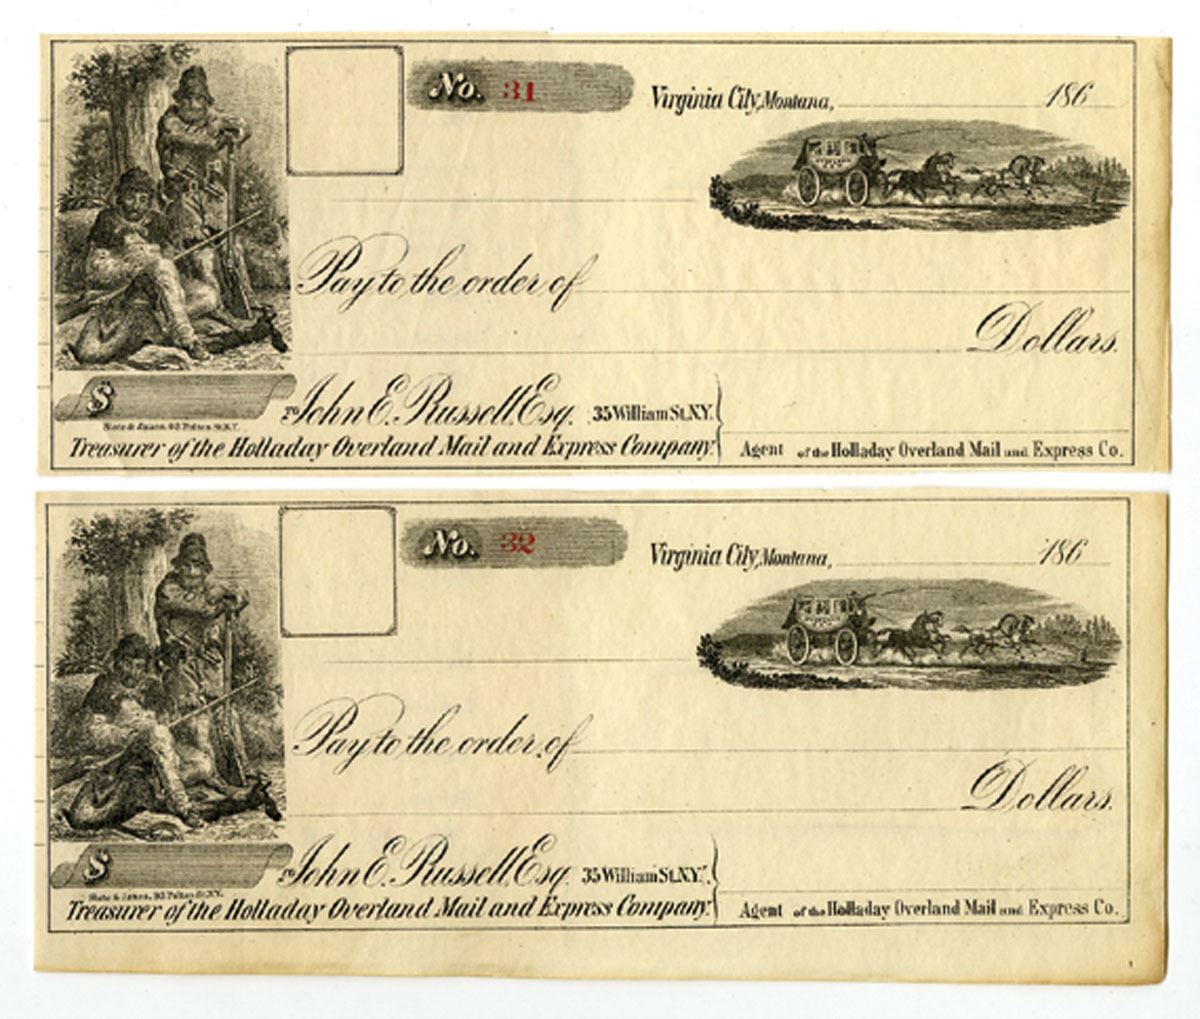 No. 31
Virginia City, Montana, 186
Pay to the order of
Dollars.
$
TO John E. Russell, Esq. 35 William St. N.Y.
Treasurer of the Holladay Overland Mail and Express Company.
Agent of the Holladay Overland Mail and Express Co.
No. 32
Virginia City, Montana, 186
Pay to the order of
Dollars.
$
TO John E. Russell, Esq. 35 William St. N.Y.
Treasurer of the Holladay Overland Mail and Express Company.
Agent of the Holladay Overland Mail and Express Co.